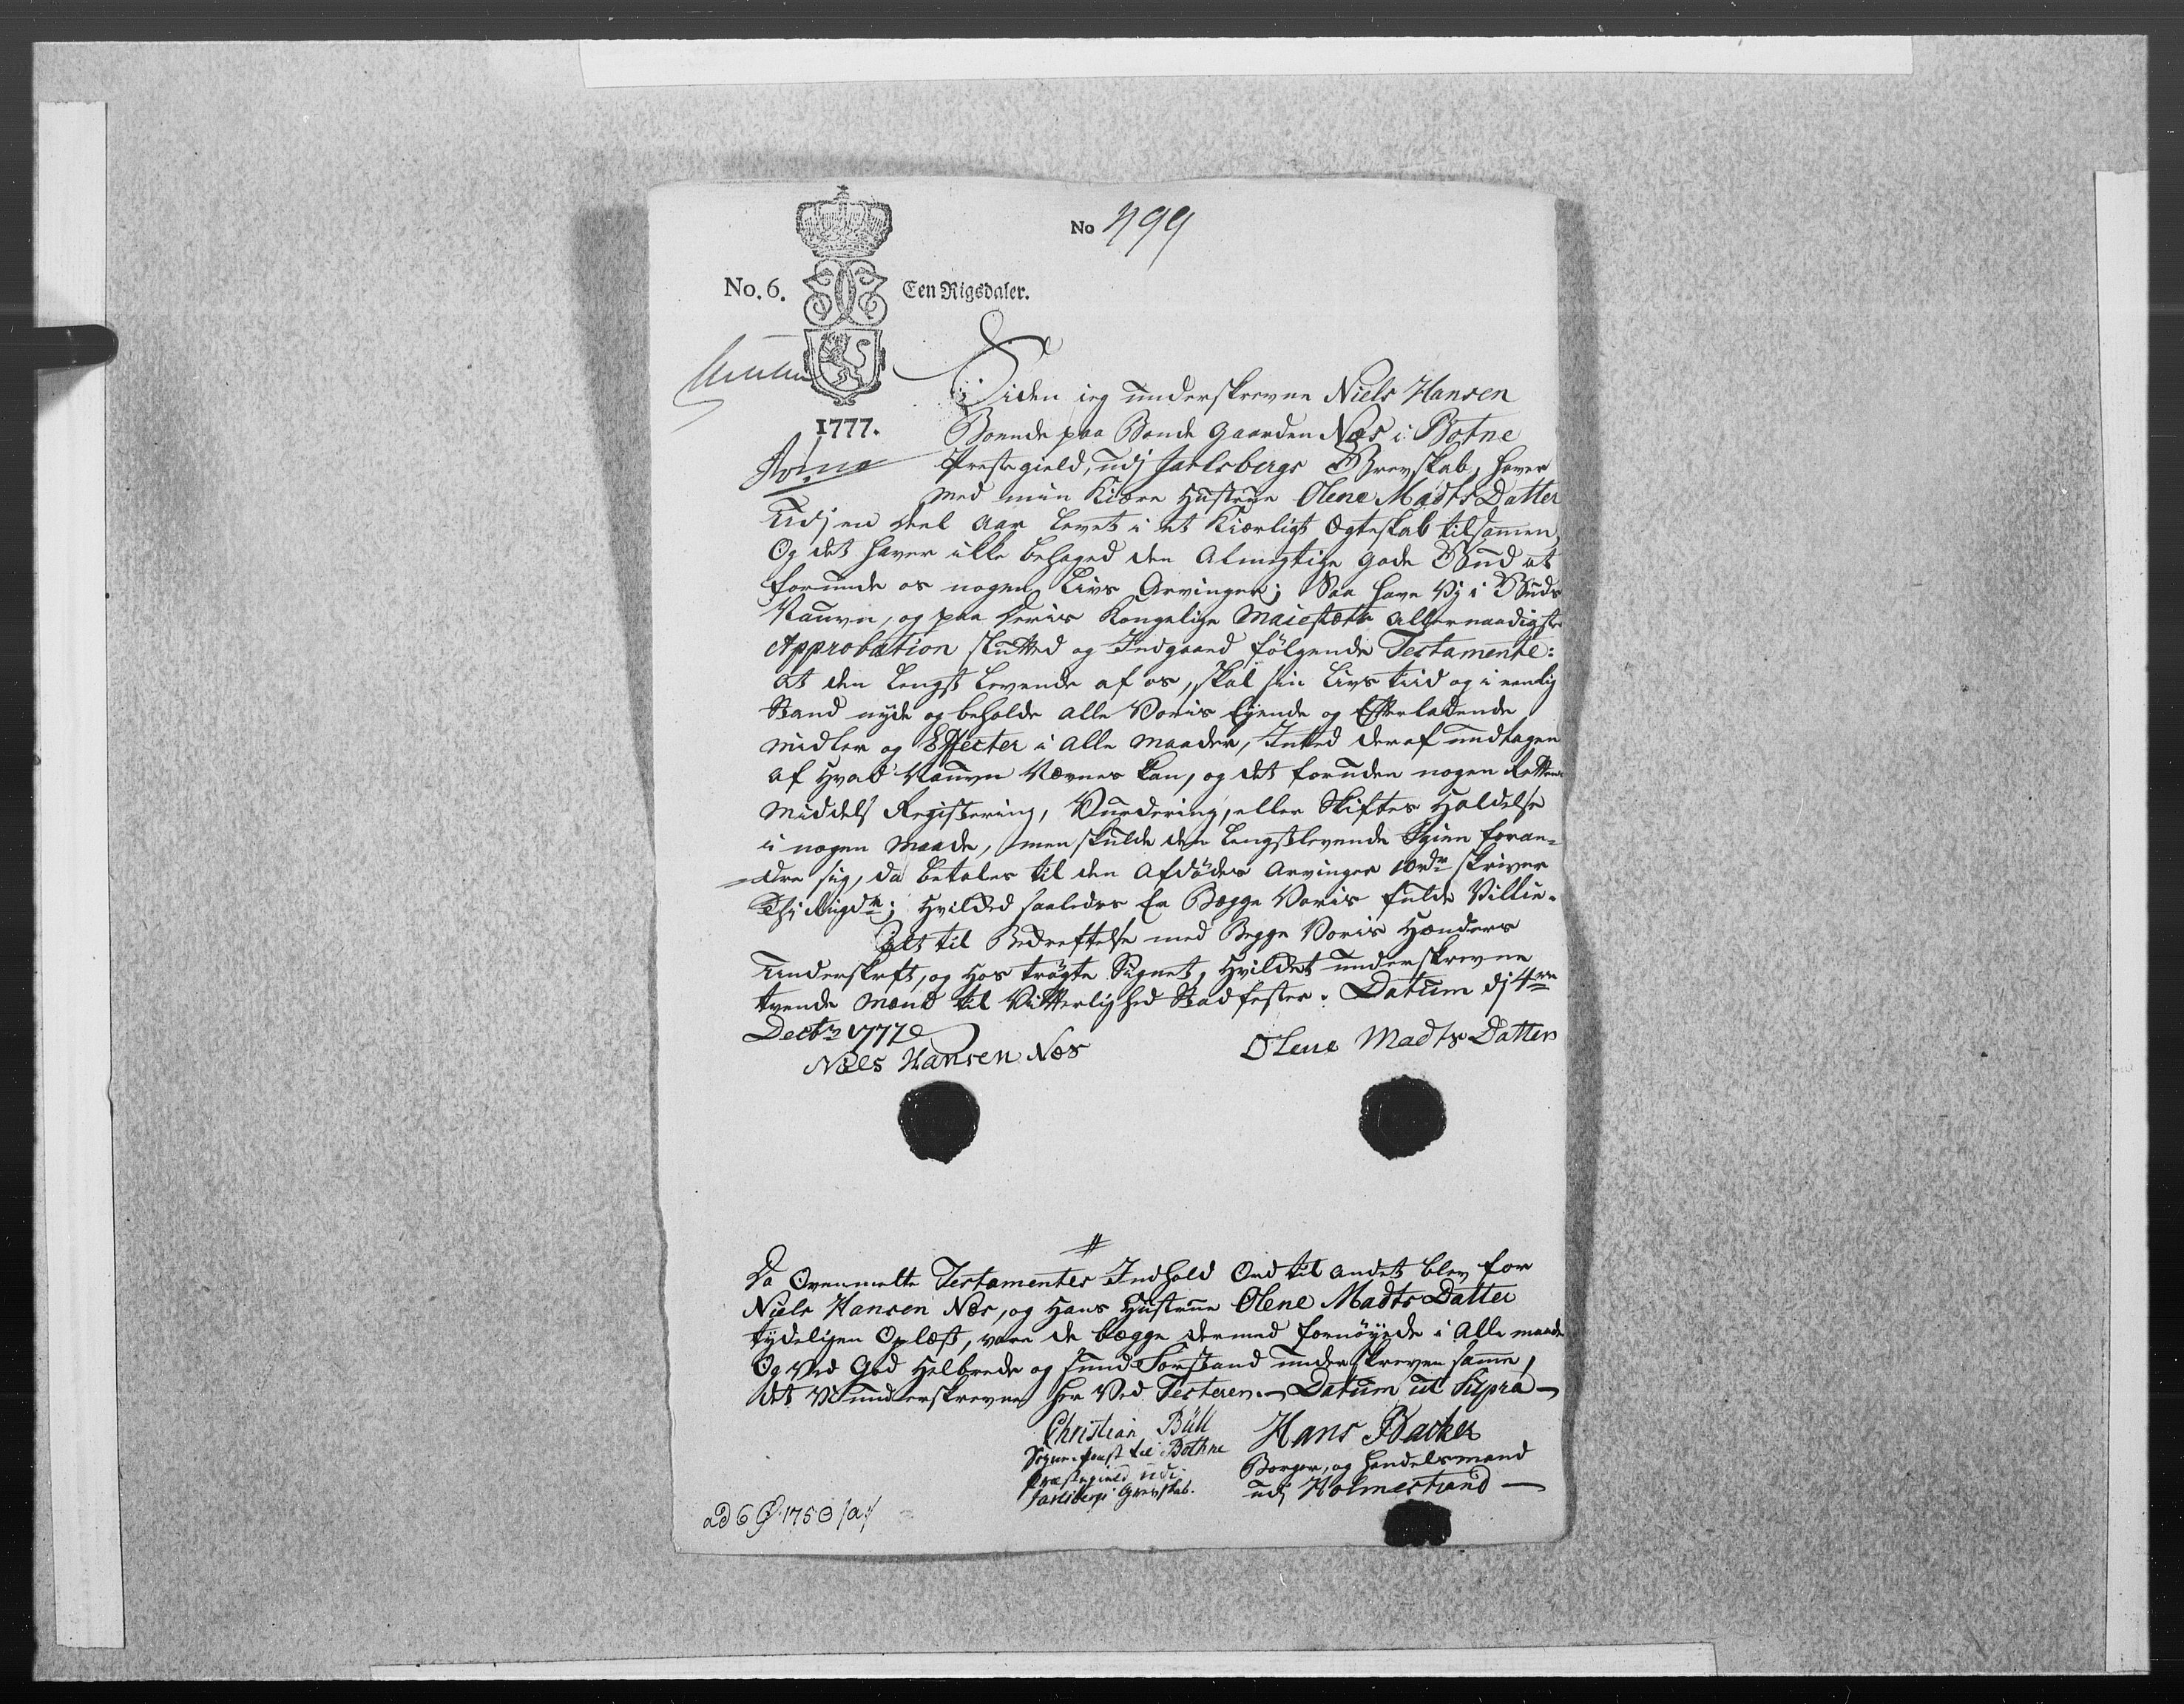 No 499
No. 6. Een Rigsdaler.
1777.
Siden ieg underskrevne Niels Hansen
Boende paa Bonde Gaarden Næs i Botne
Prestegield, udj Jarlsbergs Grevskab, haver
med min Kiære Hustrue Olene Madts Datter
Udj en Deel Aar Levet i et Kiærligt Ægteskab tilsammen
Og det haver ikke behaged den Almegtige Gode Gud at
forunde os nogen Livs Arvinger; Saa have Vj i Guds
Naufn, og paa Deris Kongelige Maiestætts allernaadigste
Approbation slutted og Indgaaed følgende Testamente:
at den Lengst Levende af os, skal sin Livs tiid og i eenlig
Stand nyde og beholde alle Voris Ejende og Efterladende
Midler og Effecter i alle maader, Intted deraf undtagen
af Hvad Naufn Nævnes kan, og det foruden nogen Rettens
Middels Registering, Vurdering, eller Skiftes Holdelse
i nogen Maade, men skulde den Længstlevende Igien foran=
=dre sig, da betales til den Afdødes Arvinger 10rdr skriver
Thj Rigdr; Hvilcked saaledes Er Begge Voris fulde Villie.
Alt til Bedreftelse med Begge Voris Hænders
Underskrft, og Hos trögte Signet, Hvilcket underskrevne
tvende Mænd til Vitterlighed Stadfester. Datum dj 4de
Decbr 1777
Niels Hansen Næs Olene Madts Datter
Da Ovenmelte Testamentes Indhold Ord til andet blev for
Niels Hansen Næs, og Hans Hustrue Olene Madts Datter
tydeligen Oplæst, vare de begge dermed fornøyede i Alle maade
Og ved God Helbrede og sund Forstand underskreven samme,
det Vi underskrevne her Ved Testeren. — Datum ut Supra —
Christian Büll Hans Backer
Sogne-Præst til Bothne Borger, og Handelsmand
Præstegield udi udj Holmestrand —
Jarlsbergs Grevskab.
ad 6 1753 /a:/